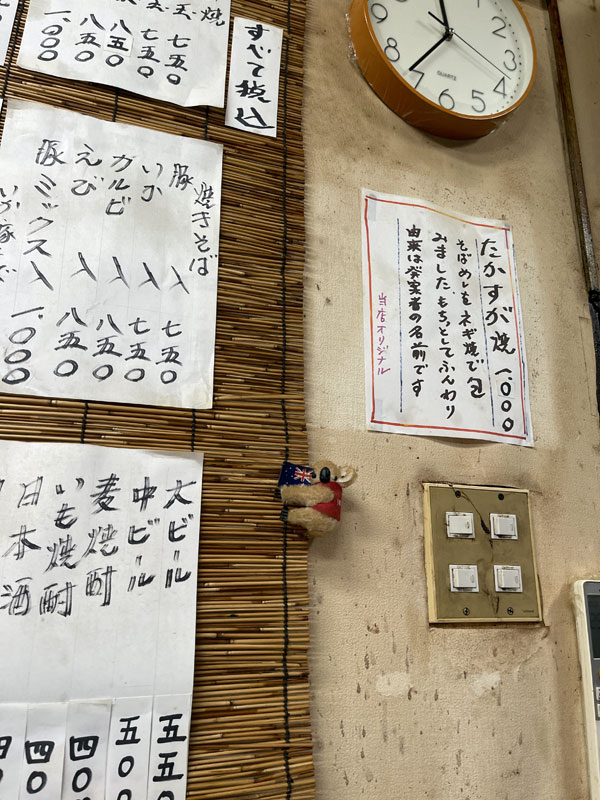 焼
玉 七五〇
七五〇
八五〇
八五〇
一、〇〇〇
すべて税込
焼きそば
豚入 七五〇
いか入 七五〇
ガルビ入 八五〇
えび入 八五〇
豚ミックス入 一、〇〇〇
大ビール 五五
中ビール 五〇
麦焼酎 四〇
いも焼酎 四〇
日本酒
たかすが焼 一、〇〇〇
そばめしをネギ焼で包
みました、もちとしてふんわり
由来は発案者の名前です
当店オリジナル
12
1
2
3
4
5
6
7
8
9
10
QUARTZ